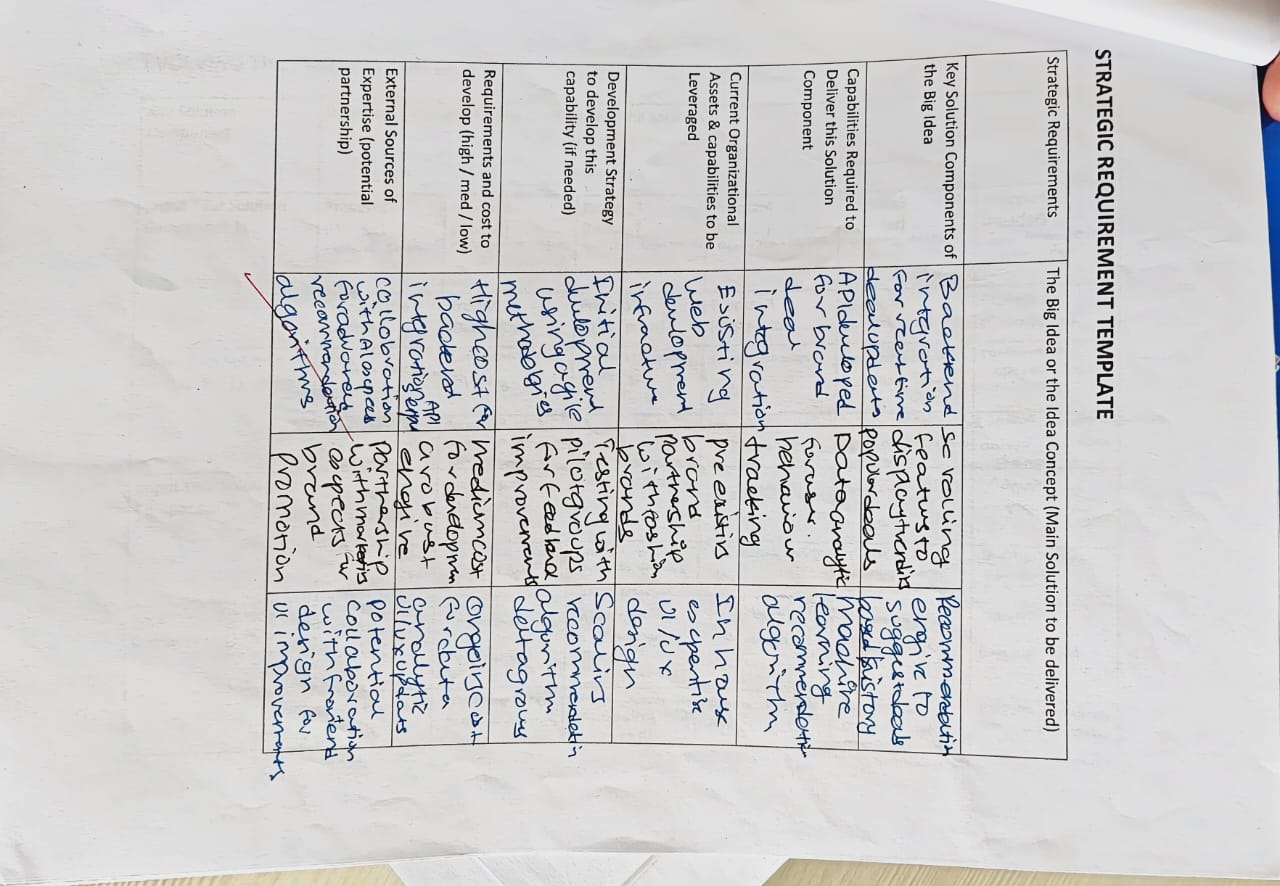 STRATEGIC REQUIREMENT TEMPLATE
Strategic Requirements
The Big Idea or the Idea Concept (Main Solution to be delivered)
Key Solution Components of
the Big Idea
Backend
integration
for real time
deal updates
scrolling
features to
display trending
popular deals
Recommendation
engine to
suggest deals
based history
Capabilities Required to
Deliver this Solution
Component
API developed
for brand
deal
integration
Data analytic
for user.
behaviour
tracking
Machine
learning
recommendation
algorithm
Current Organizational
Assets & capabilities to be
Leveraged
Existing
web
development
pre existing
brand
partnership
with fashion
brands
In house
expertise
UI/UX
design
Development Strategy
to develop this
capability (if needed)
Initial
development
using agile
methodologies
Testing with
pilot groups
for feedback
improvements
Scaling
recommendation
algorithm
Requirements and cost to
develop (high / med / low)
High cost for
backend
API
integration
Medium cost
for development
a robust
engine
ongoing cost
for data
analytic
UI/UX updates
External Sources of
Expertise (potential
partnership)
collobration
with AI
for advanced
recommendation
algorithms
partnership
with marketing
for
brand
promotion
potential
collaboration
with frontend
design for
UI improvements